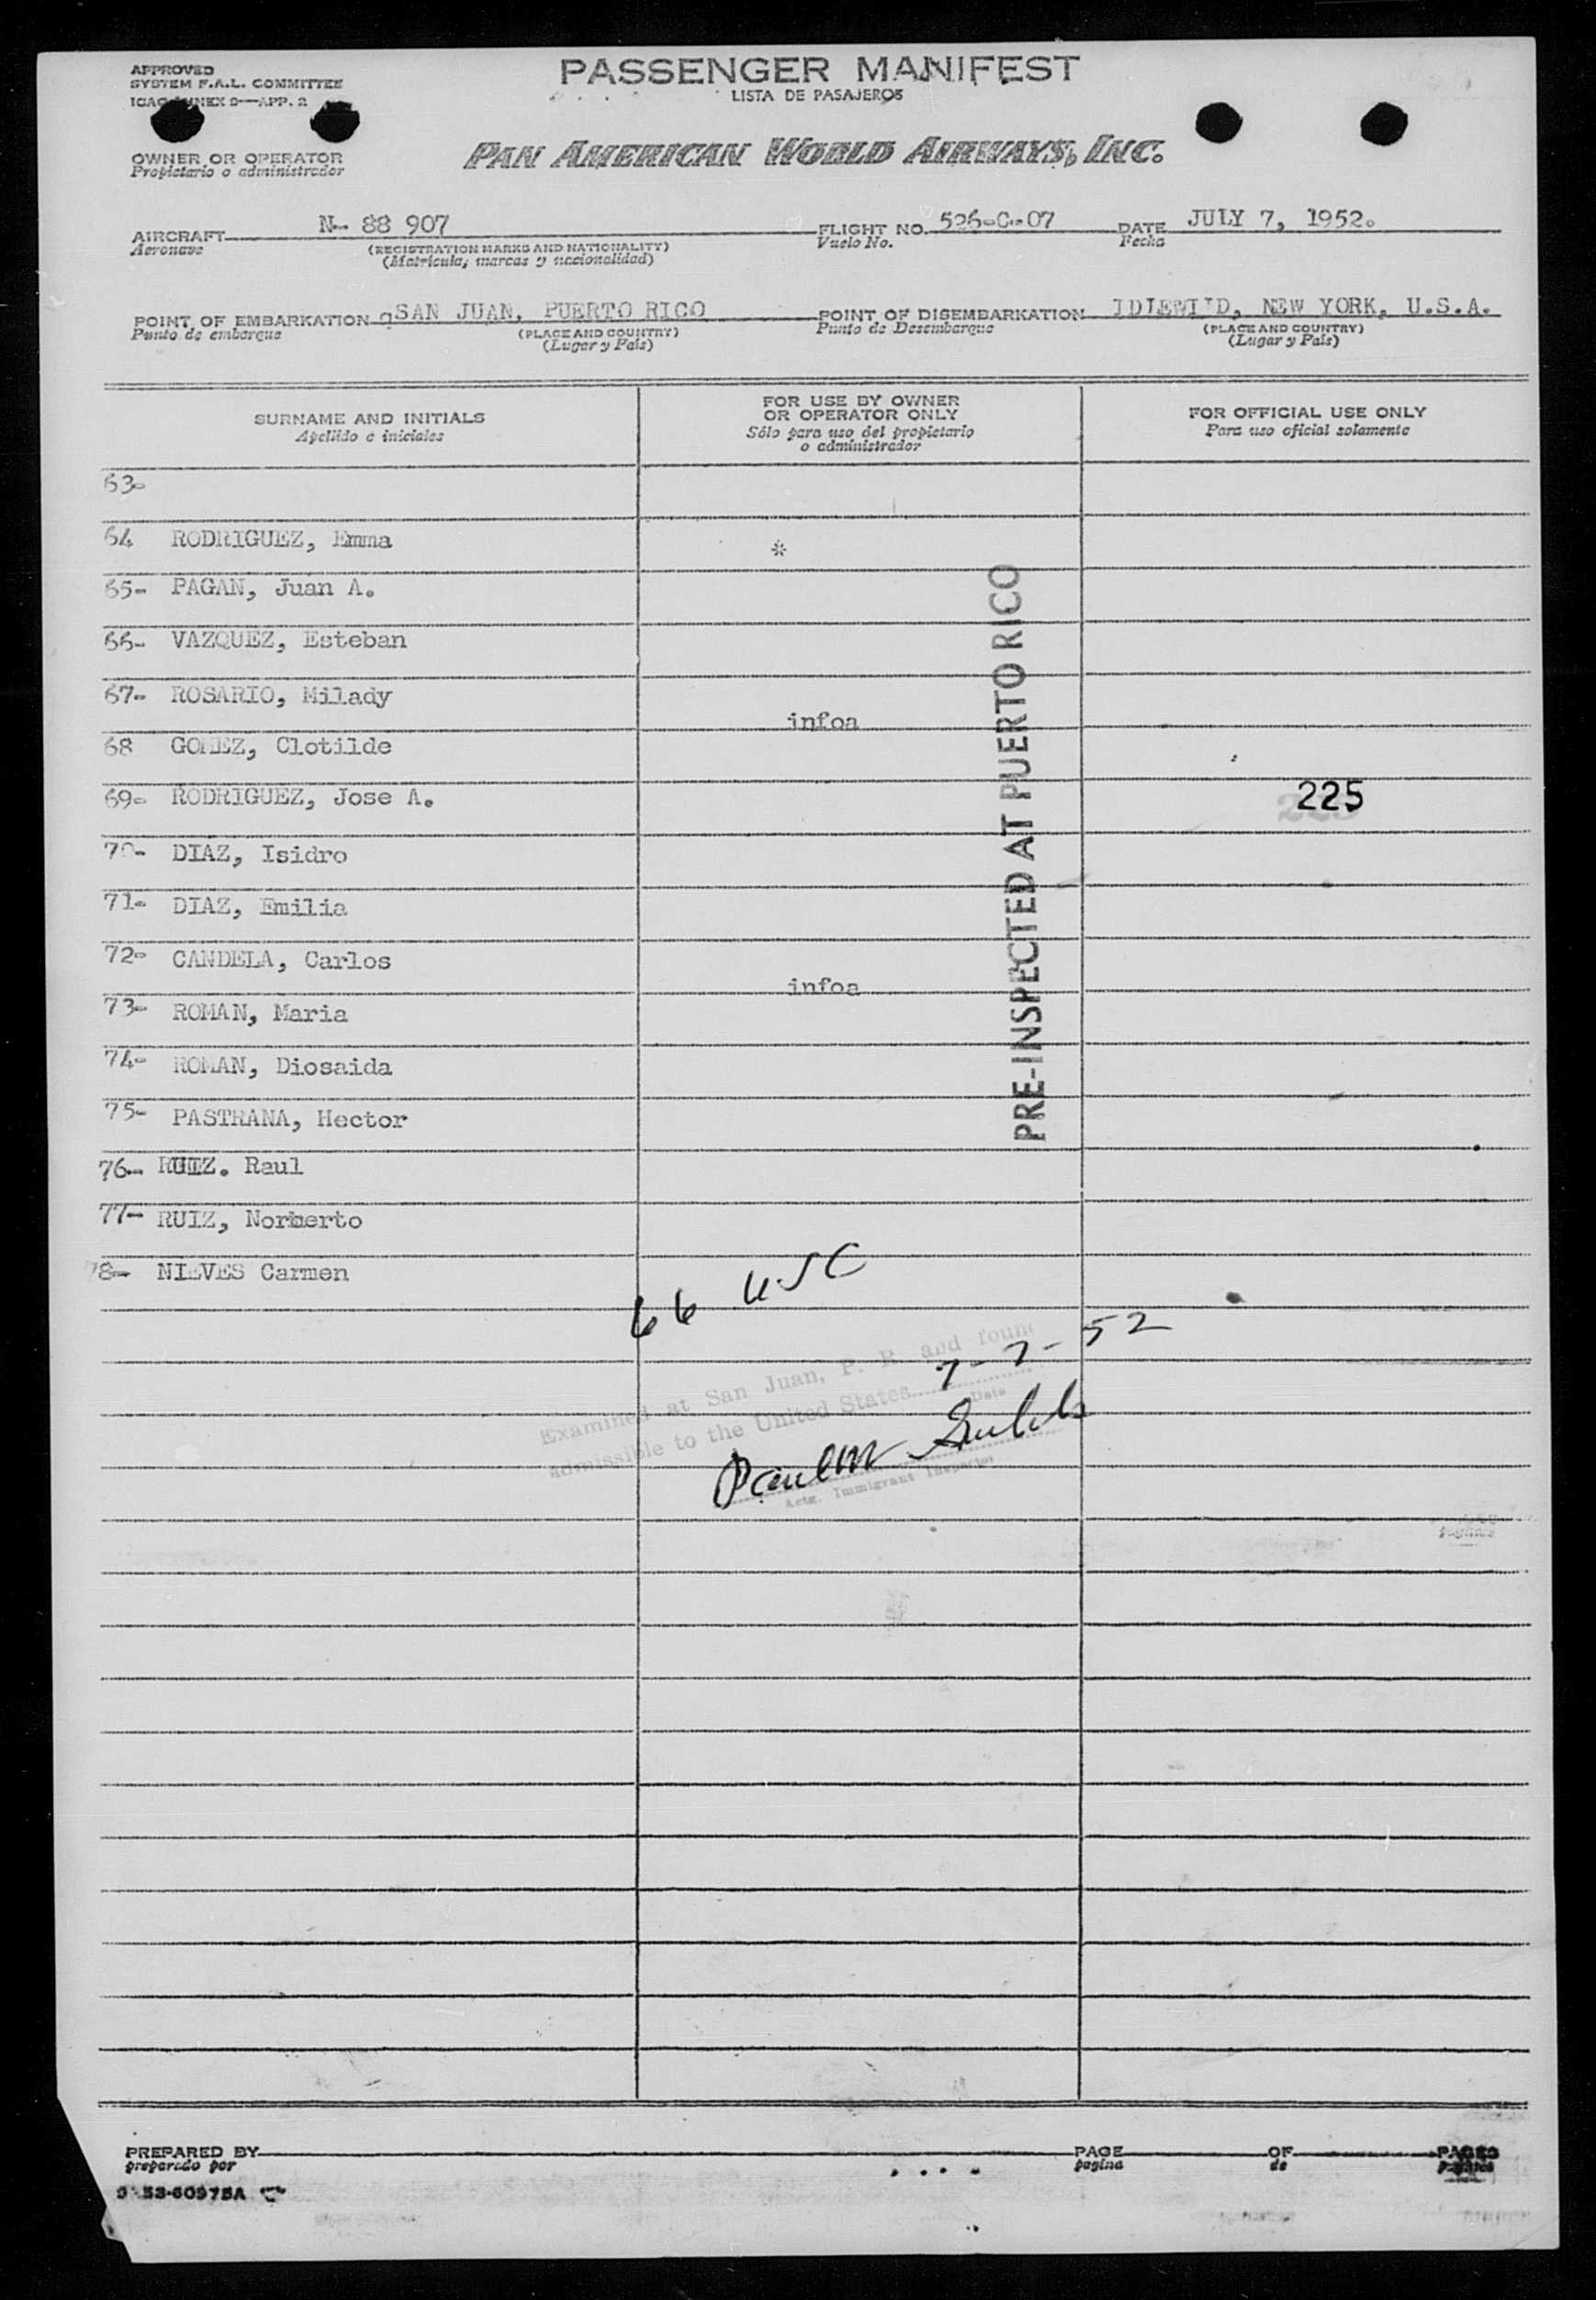 APPROVED
SYSTEM F.A.L. COMMITTEE
ICAO ANNEX 9—APP. 2
PASSENGER MANIFEST
LISTA DE PASAJEROS
OWNER OR OPERATOR
Propietario o administrador
PAN AMERICAN WORLD AIRWAYS, INC.
AIRCRAFT N- 88 907 FLIGHT NO. 526-C-07 DATE JULY 7, 1952.
Aeronave (REGISTRATION MARKS AND NATIONALITY) Vuelo No. Fecha
(Matrícula, marcas y nacionalidad)
POINT OF EMBARKATION SAN JUAN, PUERTO RICO POINT OF DISEMBARKATION IDLEWILD, NEW YORK, U.S.A.
Punto de embarque (PLACE AND COUNTRY) Punto de Desembarque (PLACE AND COUNTRY)
(Lugar y País) (Lugar y País)
SURNAME AND INITIALS FOR USE BY OWNER OR OPERATOR ONLY FOR OFFICIAL USE ONLY
Apellido e iniciales Sólo para uso del propietario o administrador Para uso oficial solamente
63-
64 RODRIGUEZ, Emma *
65- PAGAN, Juan A.
66- VAZQUEZ, Esteban
67- ROSARIO, Milady
infoa
68 GOMEZ, Clotilde
69- RODRIGUEZ, Jose A. 225
70- DIAZ, Isidro
71- DIAZ, Emilia
72- CANDELA, Carlos
infoa
73- ROMAN, Maria
74- ROMAN, Diosaida
75- PASTRANA, Hector
76- RUIZ. Raul
77- RUIZ, Norberto
78- NIEVES Carmen
PRE-INSPECTED AT PUERTO RICO
66 USC
Examined at San Juan, P. R. and found
admissible to the United States 7-7-52
Date
Actg. Immigrant Inspector
PREPARED BY PAGE OF PAGES
preparado por pagina de paginas